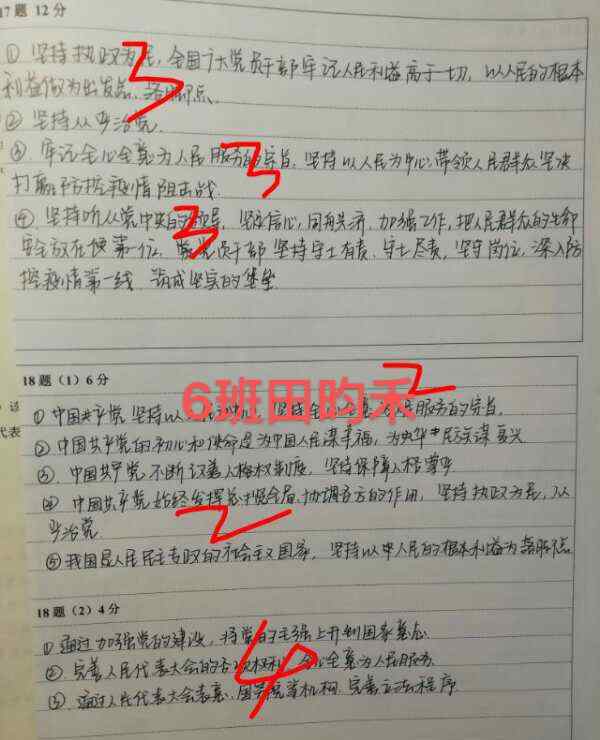 17题 12分
① 坚持执政为民,全国广大党员干部牢记人民利益高于一切,以人民的根本
利益做为出发点、落脚点、
② 坚持从严治党
③. 牢记全心全意为人民服务的宗旨. 坚持以人民为中心,带领人民群众坚决
打赢防控疫情阻击战.
④ 坚持听从党中央的领导, 坚定信心,同舟共济, 加强工作, 把人民群众的生命
安全放在第一位. 党员干部坚持守土有责、守土尽责, 坚守岗位, 深入防
控疫情第一线. 筑成坚实的堡垒.
3
3
3
18题(1)6分
2
6班田昀禾
① 中国共产党坚持以人民为中心, 坚持全心全意为人民服务的宗旨.
② 中国共产党的初心和使命是为中国人民谋幸福,为中华民族谋复兴
代表
③. 中国共产党不断完善人权制度, 坚持保障人格尊严
④ 中国共产党始终发挥总揽全局,协调各方的作用, 坚持执政为民,从
严治党
2
⑤ 我国是人民民主专政的社会主义国家, 坚持以人民的根本利益为落脚点
18题(2)4分
① 通过加强党的建设, 将党的主张上升到国家意志
② 完善人民代表大会的各项权利, 全心全意为人民服务
③. 通过人民代表大会表意. 国家机构. 完善立法程序
4